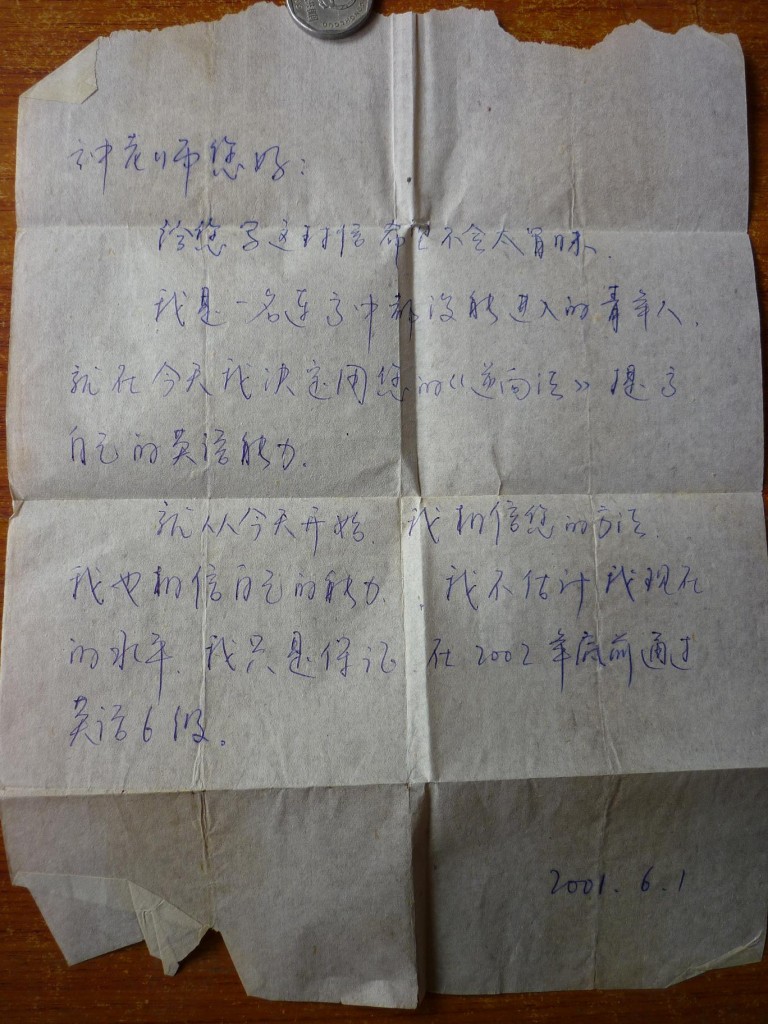 钟老师您好:
给您写这封信希望不会太冒昧.
我是一名连高中都没能进入的青年人.
就在今天我决定用您的《逆向法》提高
自己的英语能力.
就从今天开始. 我相信您的方法.
我也相信自己的能力. 我不估计我现在
的水平. 我只是保证 在2002年底前通过
英语6级。
2001.6.1